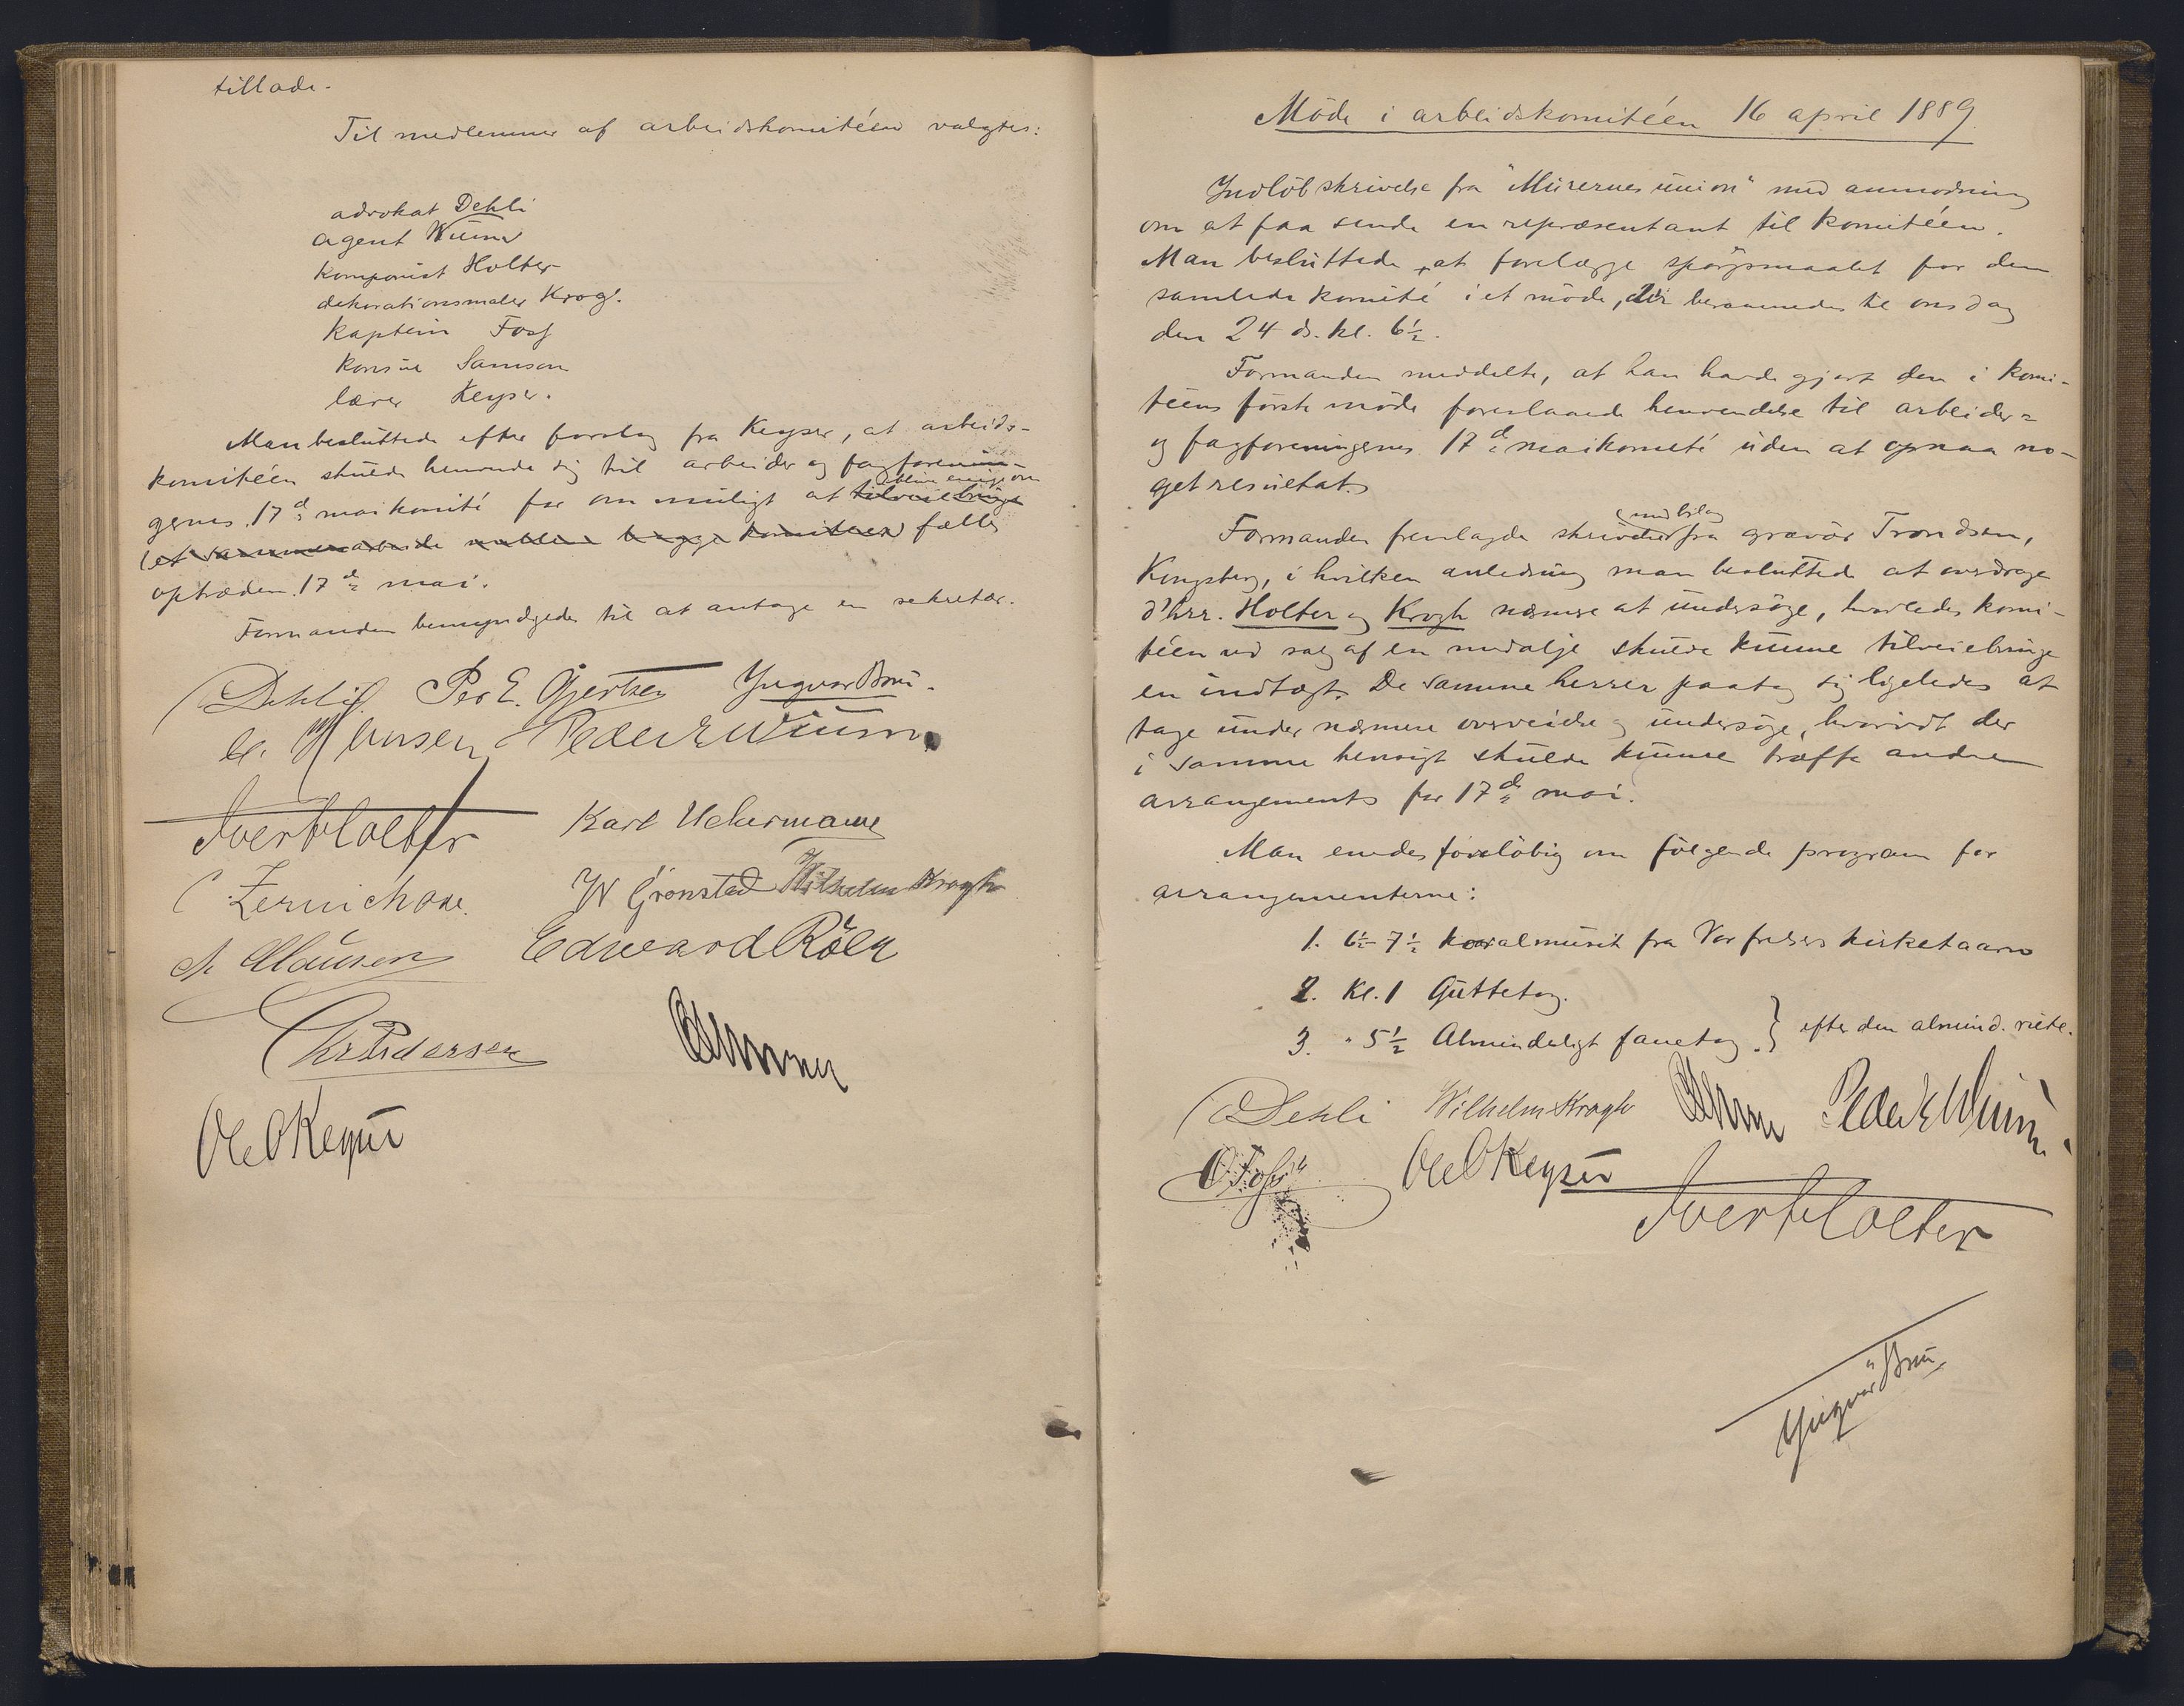 tillade.
Til medlemmer af arbeidskomitéen valgtes:
advokat Dehli
agent Wiium
komponist Holter
dekorationsmaler Krogh
kaptein Foss
konsul Samson
lærer Keyser.
Man besluttede efter forslag fra Keyser, at arbeids-
komitéen skulde henvende sig til arbeider og fagforenin-
blive enige om
gernes 17de maikomité for om muligt at tilveiebringe
(et samarbeide mellem begge komitéer) fælles
optræden 17de mai.
Formanden bemyndigedes til at antage en sekretær.
Dehli. Per E. Gjertsen Yngvar Brun.
Peder E Wiium.
Iver Holter Karl Uchermann
C Zernichow. W Grønstad Wilhelm Krogh
Clausen Edward Röer
Chr Pedersen
Ole O Keyser
Møde i arbeidskomitéen 16 april 1889.
Indløb skrivelse fra "Murernes union" med anmodning
om at faa sende en repræsentant til komitéen.
Man besluttede, at forelægge spørgsmaalet for den
samlede komité i et møde, der berammedes til onsdag
den 24 ds. kl. 6½.
Formanden meddelte, at han havde gjort den i komi-
téens første møde foreslaaede henvendelse til arbeider-
og fagforeningernes 17de maikomité uden at opnaa no-
get resultat.
med bilag
Formanden fremlagde skrivelse fra gravør Trondsen,
Kongsberg, i hvilken anledning man besluttede at overdrage
d'hrr. Holter og Krogh nærmere at undersøge, hvorledes komi-
téen ved salg af en medalje skulde kunne tilveiebringe
en indtægt. De samme herrer paatog sig ligeledes at
tage under nærmere overveielse og undersøge, hvorvidt der
i samme hensigt skulde kunne træffe andre
arrangements for 17de mai.
Man enedes foreløbig om følgende program for
arrangementerne:
1. 6½-7½ koralmusik fra Vor frelsers kirketaarn
2. Kl. 1 Guttetog.
3. " 5½ Almindeligt fanetog. } efter den almind. rute.
Dehli Wilhelm Krogh Peder E Wiium.
O Foss Ole O Keyser
Iver Holter
Yngvar Brun